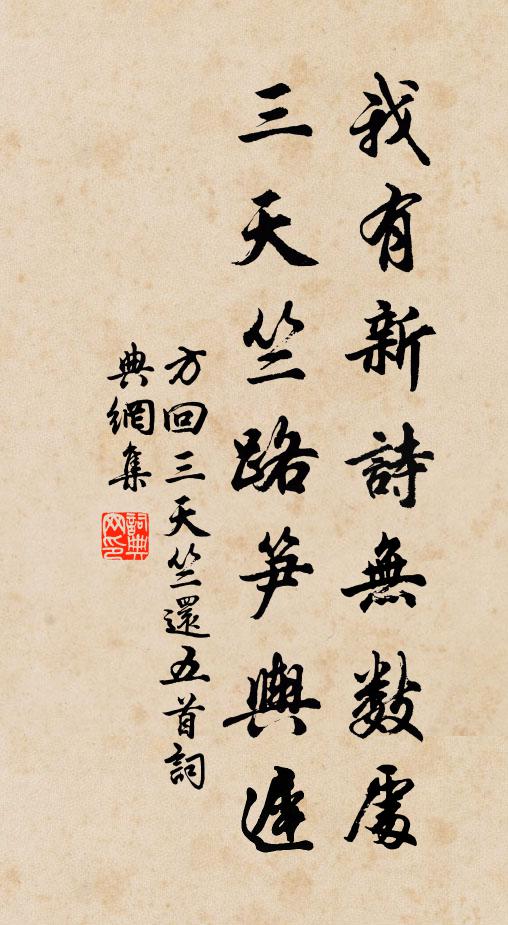 我有新詩無数處
三天竺路笋輿遲
方回三天竺還五首詞
典網集
詞典
网印